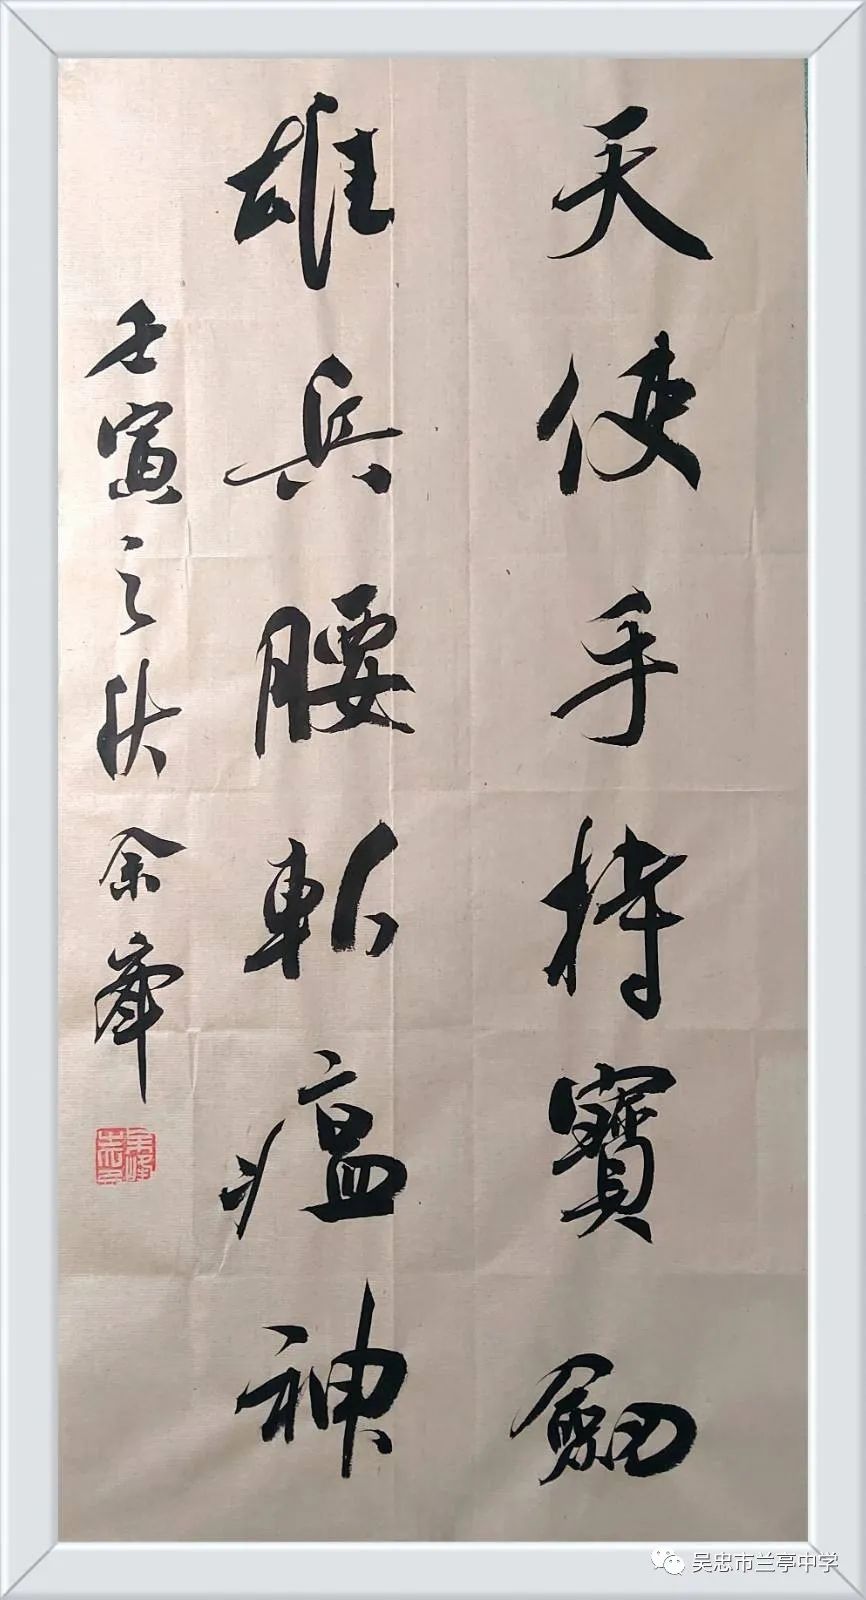 天使手持寶劍
雄兵腰斬瘟神
壬寅之秋余峯
吴忠市兰亭中学